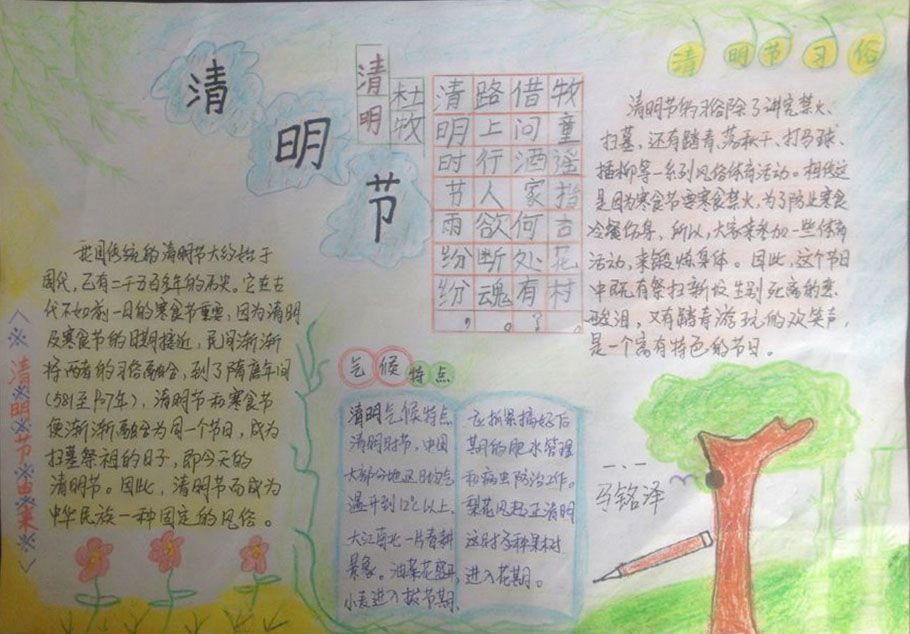 清
明
节
清明
杜牧
清明时节雨纷纷，
路上行人欲断魂。
借问酒家何处有？
牧童遥指杏花村。
清明节习俗
清明节的习俗除了讲究禁火、
扫墓，还有踏青、荡秋千、打马球、
插柳等一系列风俗体育活动。相传这
是因为寒食节要寒食禁火，为了防止寒食
冷餐伤身，所以，大家来参加一些体育
活动，来锻炼身体。因此，这个节日
中既有祭扫新坟生别死离的悲
酸泪，又有踏青游玩的欢笑声，
是一个富有特色的节日。
清明节由来
我国传统的清明节大约始于
周代，已有二千五百多年的历史。它在古
代不如前一日的寒食节重要，因为清明
及寒食节的日期接近，民间渐渐
将两者的习俗融合，到了隋唐年间
(581至907年)，清明节和寒食节
便渐渐融合为同一个节日，成为
扫墓祭祖的日子，即今天的
清明节。因此，清明节而成为
中华民族一种固定的风俗。
气候特点
清明气候特点
清明时节，中国
大部分地区日均气
温升到12℃以上，
大江南北一片春耕
景象。油菜花盛开，
小麦进入拔节期，
应抓果搞好后
期的肥水管理
和病虫防治工作。
梨花风起正清明
这时多种果树
进入花期。
一、一
马铭泽